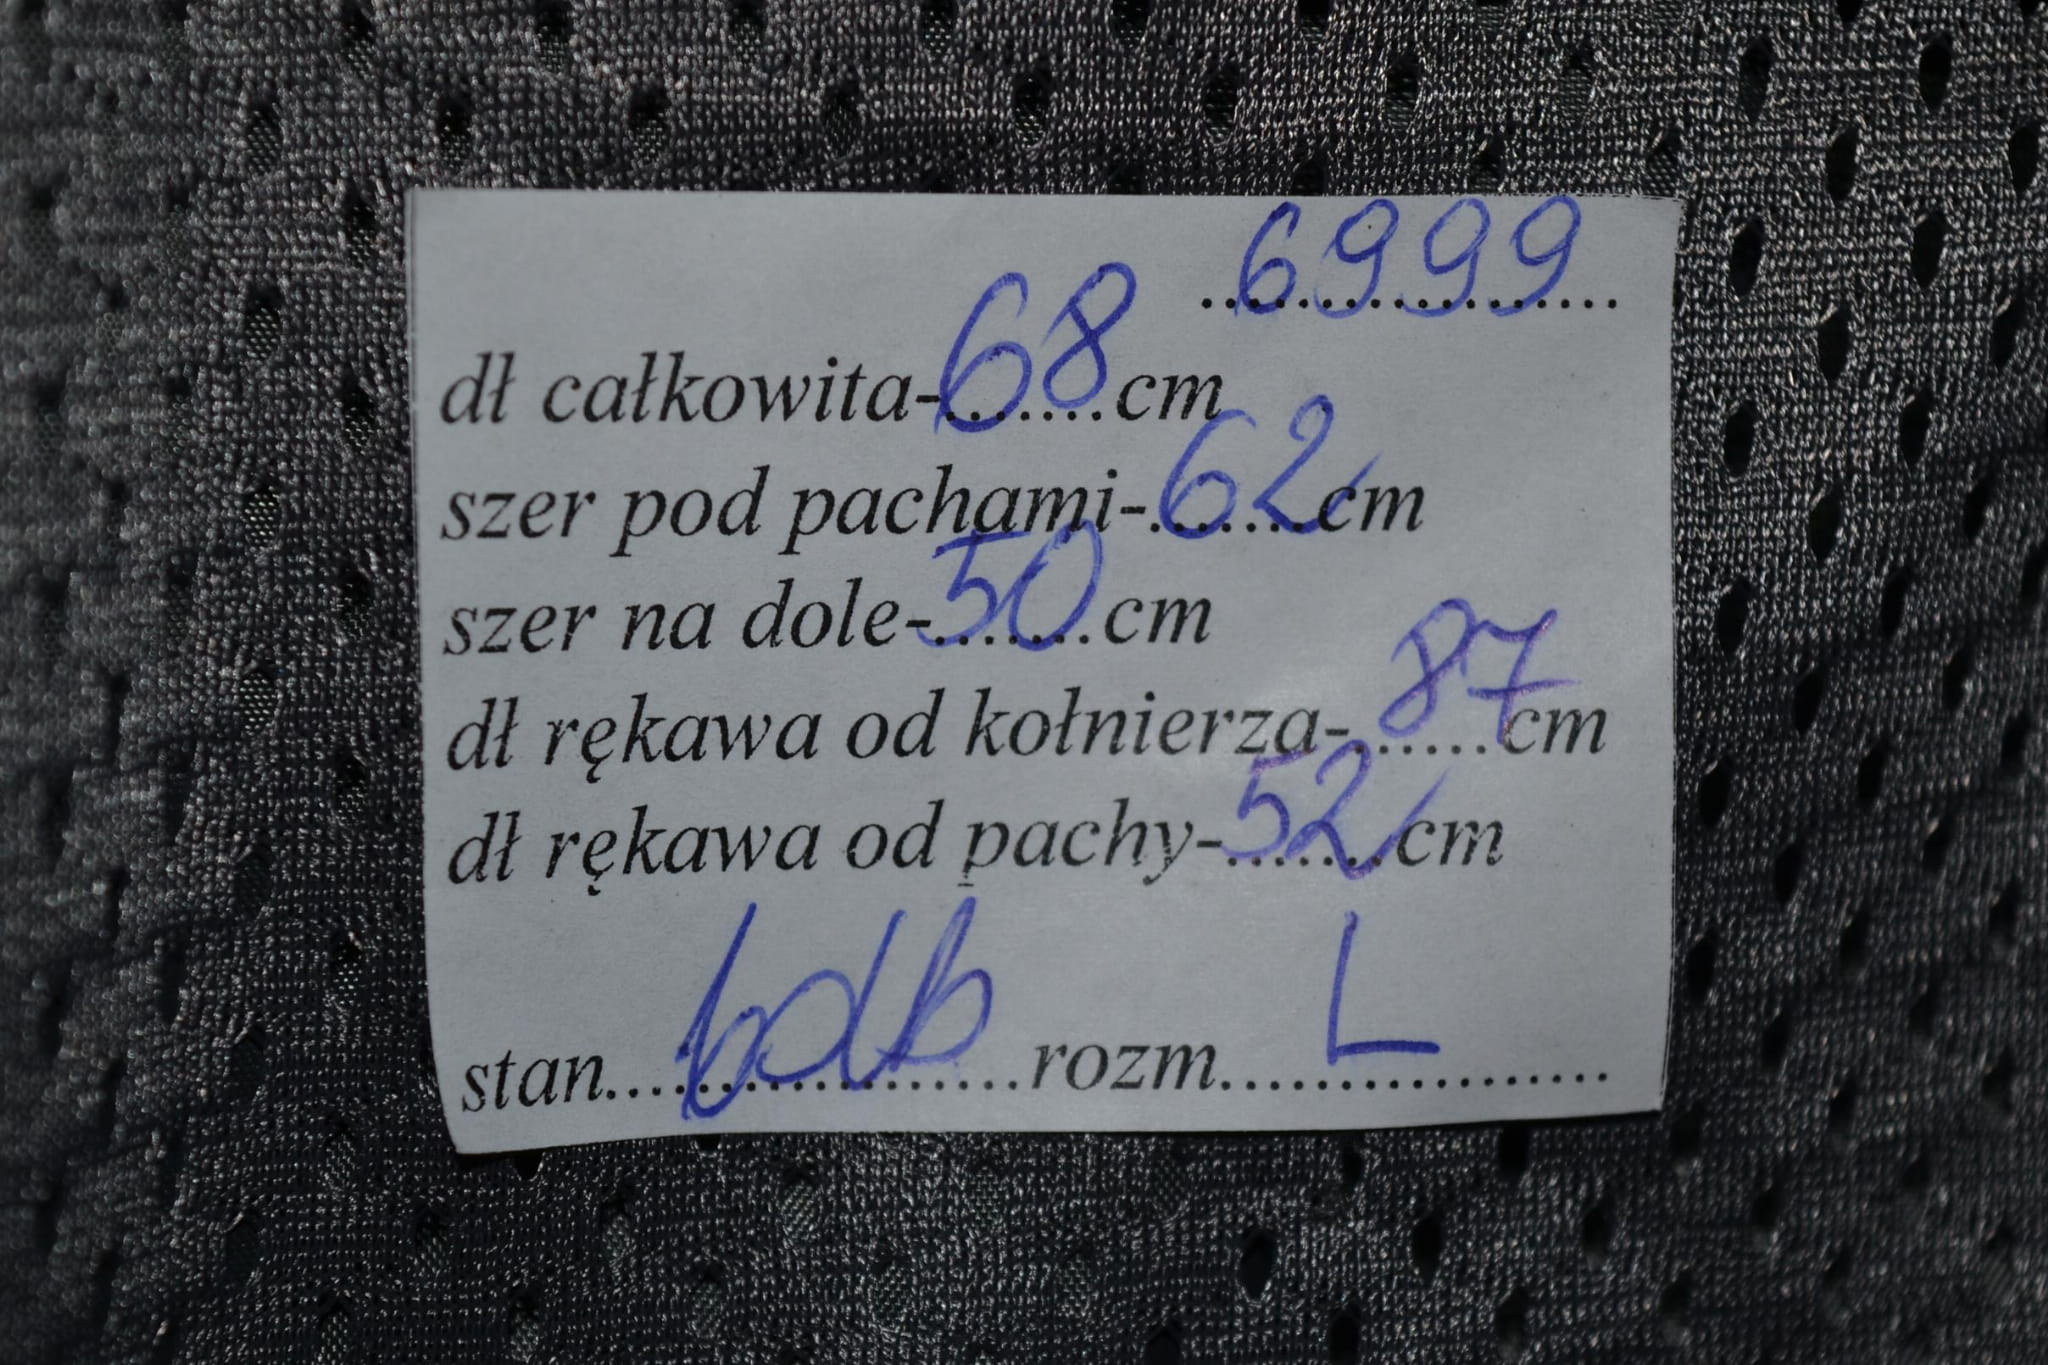 6999
dł całkowita-68cm
szer pod pachami-62cm
szer na dole-50cm
dł rękawa od kołnierza-87cm
dł rękawa od pachy-52cm
stan....bdb....rozm....L....